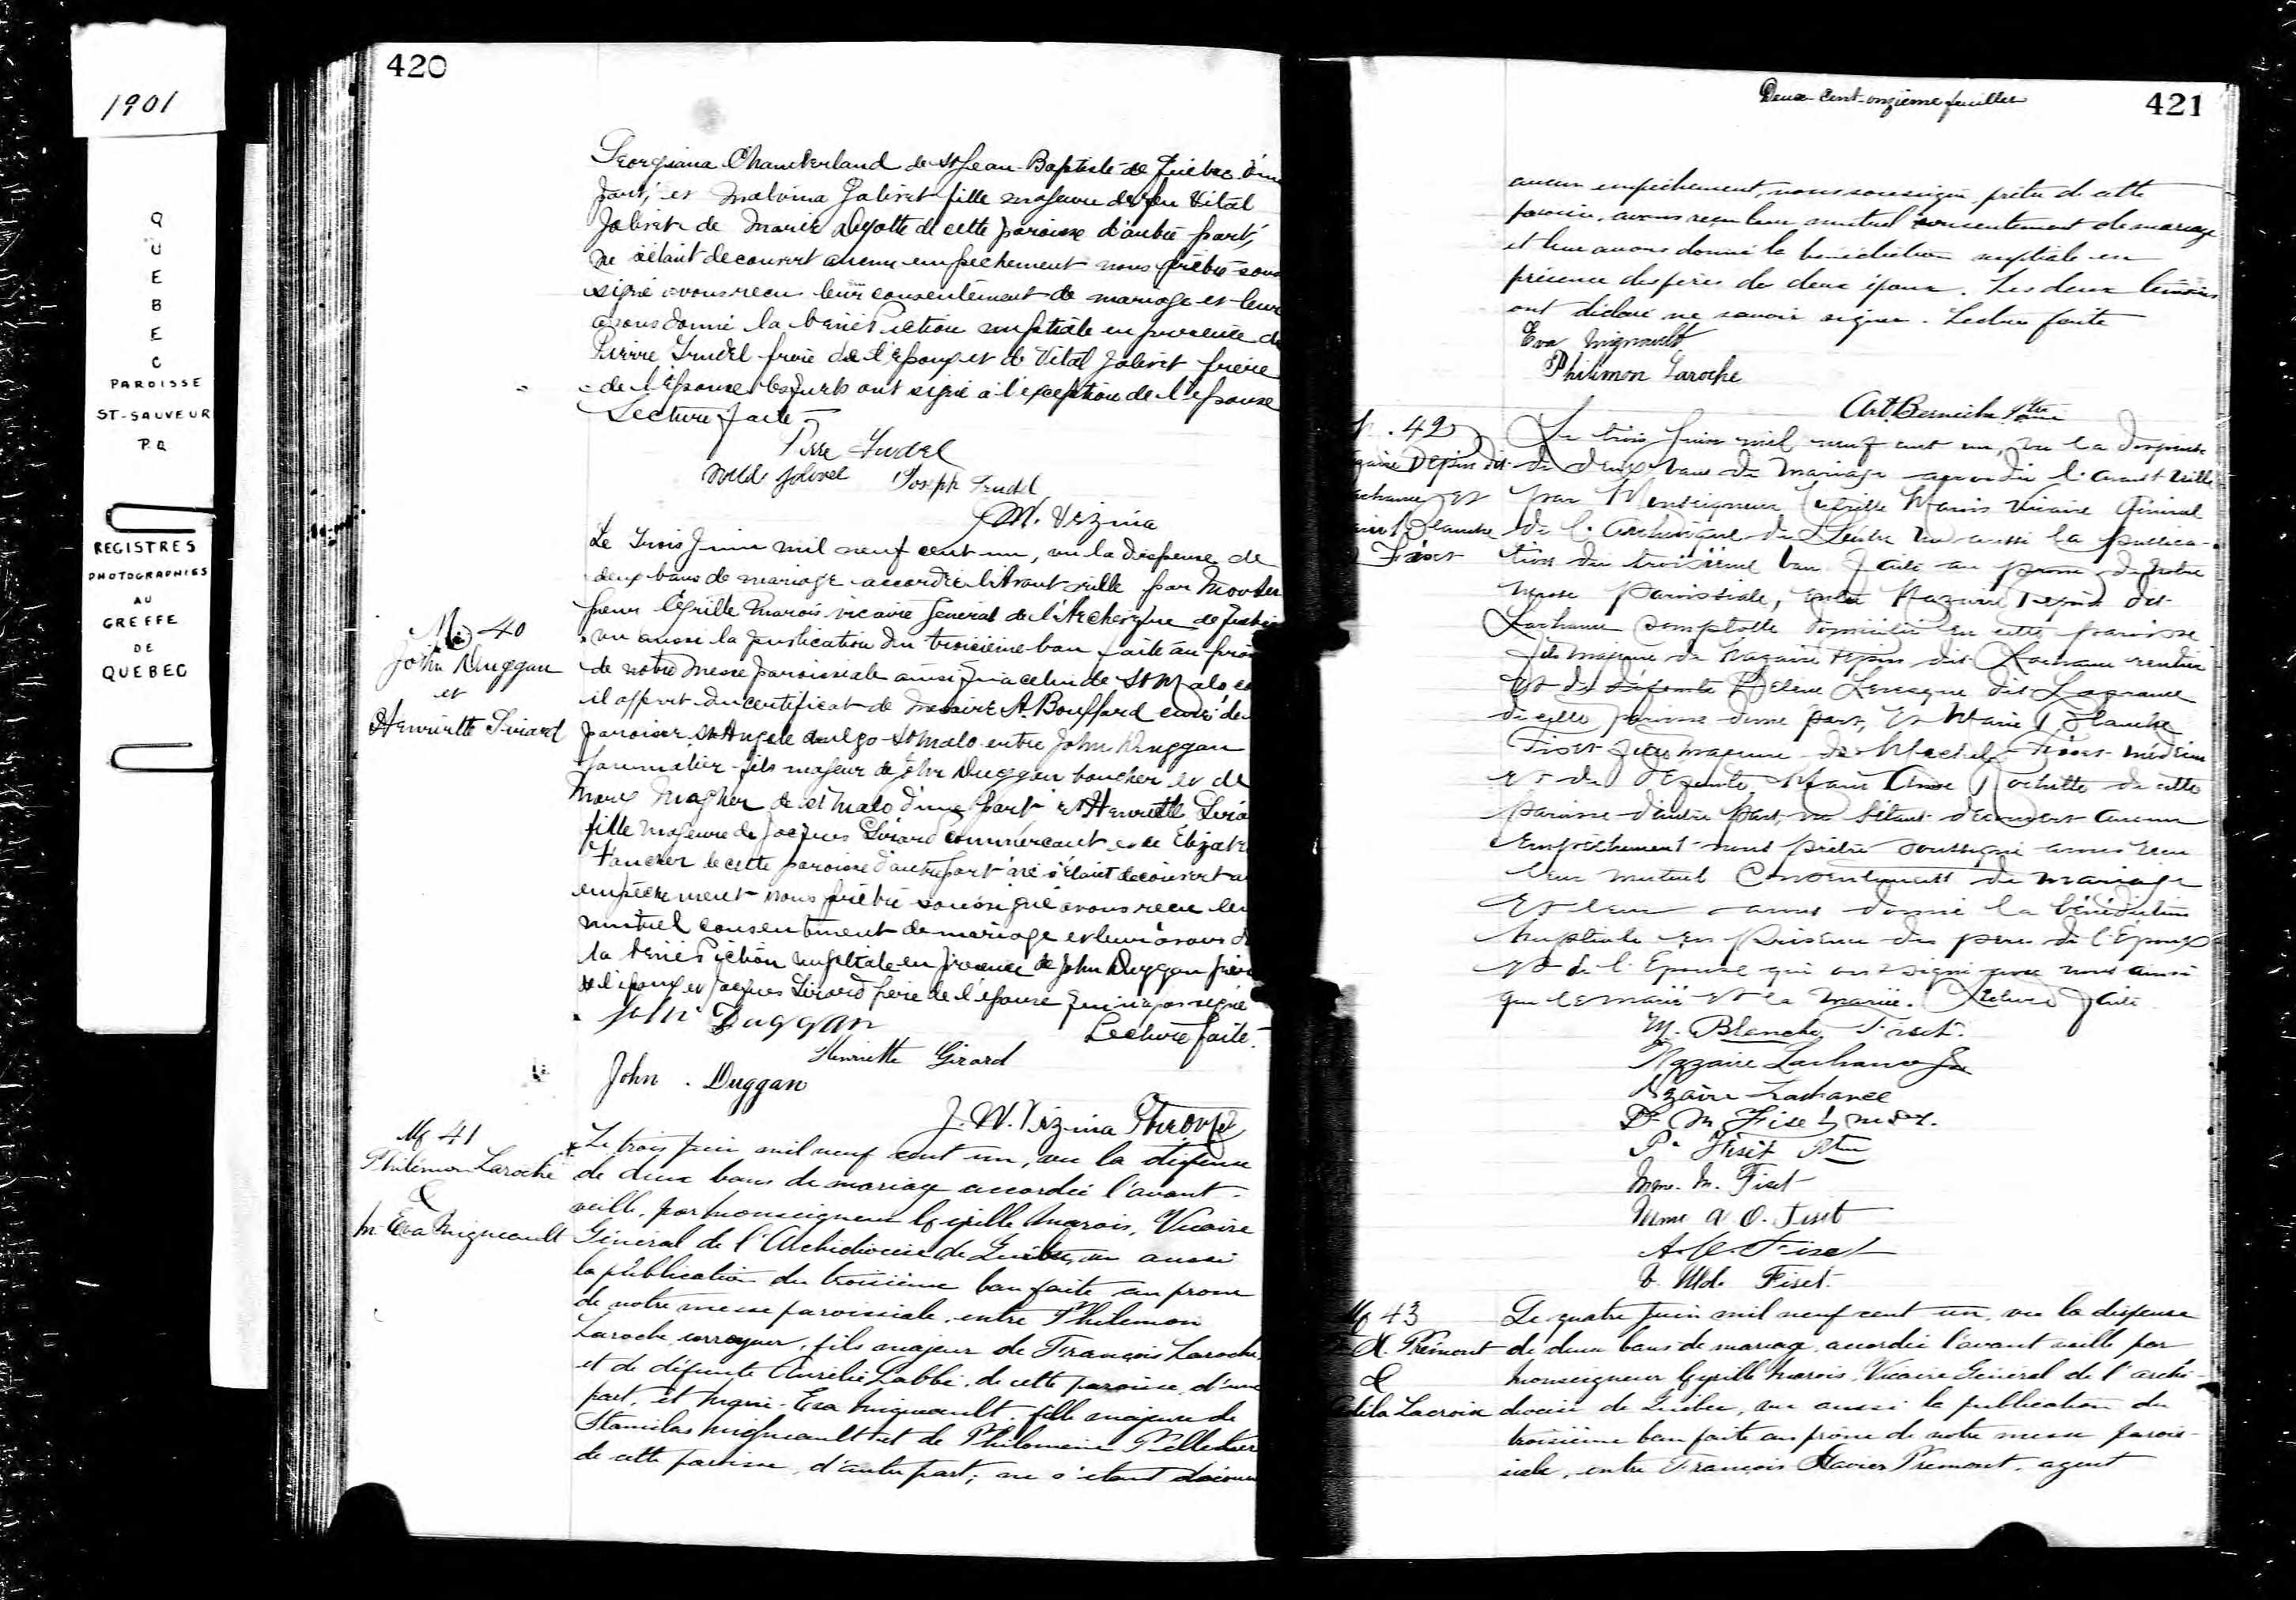 1901
QUEBEC
PAROISSE
ST-SAUVEUR
P.Q
REGISTRES
PHOTOGRAPHIES
AU
GREFFE
DE
QUEBEC
420
Georgiana Chamberland de St Jean-Baptiste de Québec d'une
part, et Malvina Jolivet fille majeure de feu Vital
Jolivet de Marie de cette paroisse d'autre part,
ne s'étant decouvert aucun empechement nous prêtre sous
signé avons recu leur consentement de mariage et leur
avons donné la bénédiction nuptiale en presence de
Pierre Trudel frère de l'époux et de Vital Jolivet frère
de l'épouse lesquels ont signé à l'exception de l'épouse
Lecture faite
Pierre Trudel
Jolivet Joseph Trudel
J M. Vezina
M 40
John Duggan
et
Henriette Girard
Le trois Juin mil neuf cent un, vu la dispense de
deux bans de mariage accordée l'avant veille par Monsei
gneur Cyrille Marois vicaire General de l'Archevêque de
vu aussi la publication du troisième ban faite au prône
de notre messe paroissiale ainsi qu'à celui de St Malo
il appert du certificat de messire A. Bouffard curé de
paroisse St Angele St Malo entre John Duggan
journalier fils majeur de John Duggan boucher et de
Mary de St Malo d'une part et Henriette Girard
fille majeure de Jacques Girard commercant et de
de cette paroisse d'autre part ne s'étant decouvert
empêchement nous prêtre soussigné avons recu leur
mutuel consentement de mariage et leur avons
la bénédiction nuptiale en presence de John Duggan père
de l'époux et Jacques Girard père de l'épouse qui n'a pas signé
John Duggan Lecture faite.
Henriette Girard
John . Duggan
M 41
Philémon Laroche
&
M-Eva Migneault
Le trois juin mil neuf cent un, vu la dispense
de deux bans de mariage accordée l'avant-
veille, par Monseigneur Cyrille Marois, Vicaire
Général de l'Archidiocèse de Québec, vu aussi
la publication du troisième ban faite au prone
de notre messe paroissiale, entre Philemon
Laroche corroyeur, fils majeur de François Laroche
et de défunte Aurélie Labbé, de cette paroisse, d'une
part, et Marie-Eva Migneault, fille majeure de
Stanislas Migneault et de Philomène Pelletier
de cette paroisse, d'autre part; ne s'étant découvert
Deux-cent-onzième feuillet
421
aucun empêchement, nous soussigné prêtre de cette
paroisse, avons reçu leur mutuel consentement de mariage
et leur avons donné la bénédiction nuptiale en
présence des pères des deux époux. Les deux témoins
ont déclaré ne savoir signer. Lecture faite
Eva Mignault
Philémon Laroche
M. 42
et
Blanche
Fiset
Le trois Juin mil neuf cent un, vu la dispense
de deux bans de mariage accordée l'avant veille
par Monseigneur Cyrille Marois Vicaire Général
de l'Archevêque de Québec vu aussi la publica-
tion du troisième ban faite au prone de notre
messe paroissiale, entre Nazaire Pepin dit
Lachance comptable domicilié en cette paroisse
fils majeur de Nazaire Pepin dit Lachance rentier
et de défunte Helène Levesque dit Lafrance
de cette paroisse d'une part, et Marie Blanche
Fiset fille mineure de Michel Fiset médecin
et de défunte Marie Anne Rochette de cette
paroisse d'autre part, ne s'étant découvert aucun
Empêchement nous prêtre soussigné avons reçu
leur mutuel Consentement de mariage
Et leur avons donné la bénédiction
Nuptiale en présence des peres de l'Epoux
et de l'Epouse qui ont signé avec nous ainsi
que le marié et la mariée. Lecture faite.
M. Blanche Fiset.
Nazaire Lachance Jr
Nzaire Lachance
Dr M Fiset
P. Fiset Ptre
Mme. M. Fiset
Mme A O. Fiset
Fiset
Fiset.
M 43
X. Prémont
&
Lacroix
Le quatre juin mil neuf cent un, vu la dispense
de deux bans de mariage, accordée l'avant veille par
Monseigneur Cyrille Marois, Vicaire Général de l'archi-
diocèse de Québec, vu aussi la publication du
troisième ban faite au prône de notre messe parois-
siale, entre François Xavier Prémont, agent